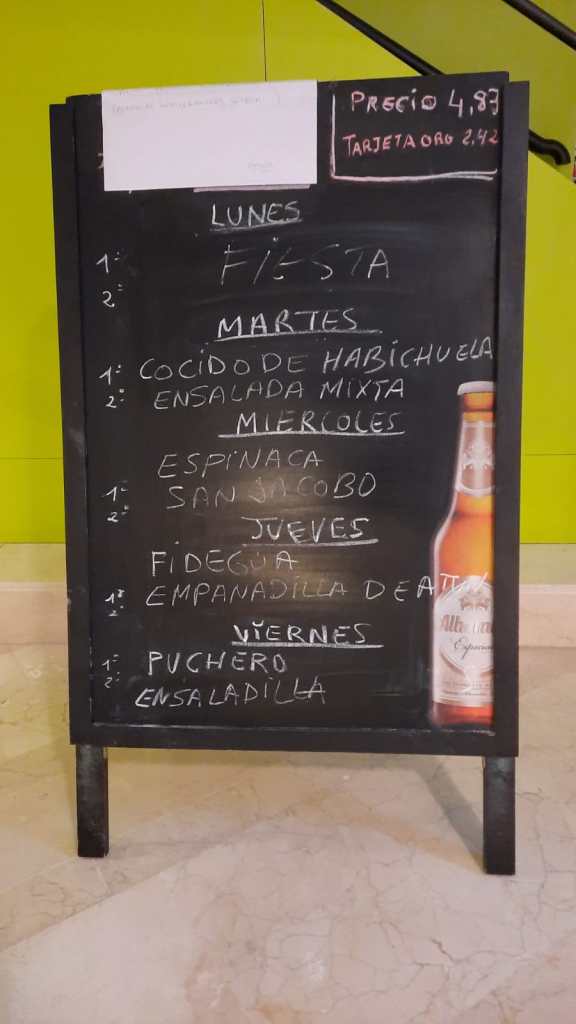 PRECIO 4,87
TARJETA ORO 2,42
LUNES
1º FIESTA
2º
MARTES
1º COCIDO DE HABICHUELA
2º ENSALADA MIXTA
MIERCOLES
1º ESPINACA
2º SAN JACOBO
JUEVES
1º FIDEGUA
2º EMPANADILLA DE ATUN
VIERNES
1º PUCHERO
2º ENSALADILLA
Especial